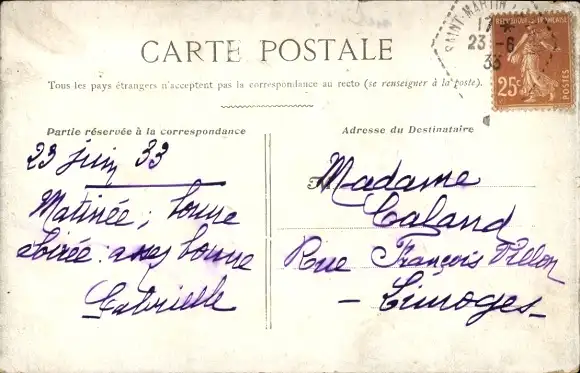 CARTE POSTALE
Tous les pays étrangers n'acceptent pas la correspondance au recto (se renseigner à la poste).
SAINT-MARTIN
17
23 - 6
33
REPUBLIQUE FRANÇAISE
25c
POSTES
Partie réservée à la correspondance
23 juin 33
Matinée ; bonne
soirée : assez bonne
Gabrielle
Adresse du Destinataire
Madame
Caland
Rue François Villon
- Limoges -